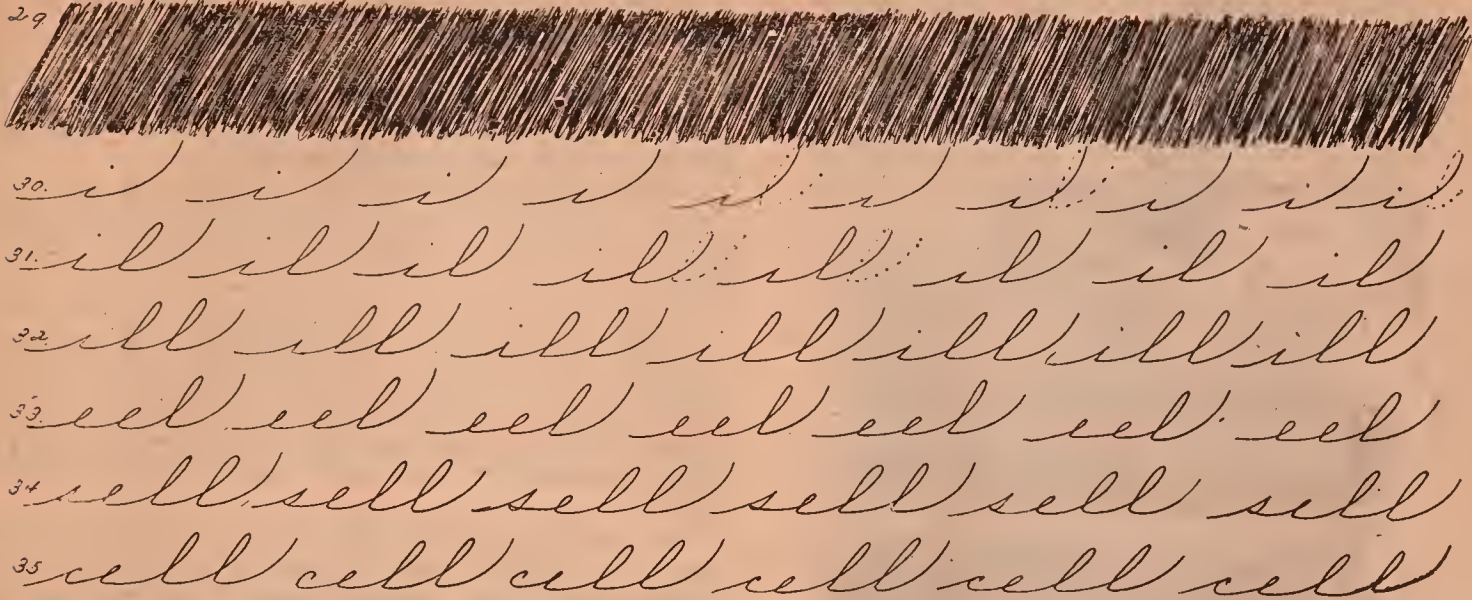 29
30. i i i i i i i i i i
31. il il il il il il il il
32. ill ill ill ill ill ill ill
33. eel eel eel eel eel eel eel
34 sell sell sell sell sell sell
35 cell cell cell cell cell cell